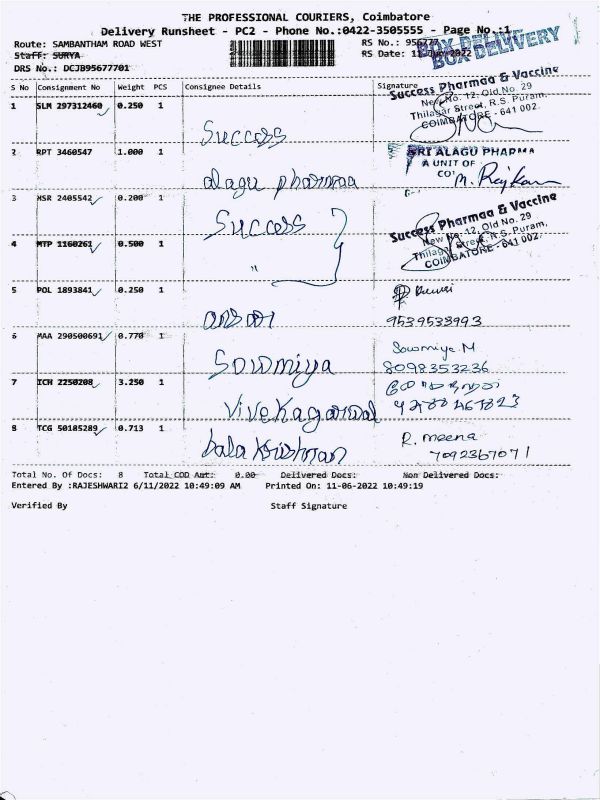 THE PROFESSIONAL COURIERS, Coimbatore
Delivery Runsheet - PC2 - Phone No.:0422-3505555 - Page No.:1
BOX DELIVERY
BOX DELIVERY
Route: SAMBANTHAM ROAD WEST
RS No.: 956777
Staff: SURYA
RS Date: 11-Jun-2022
DRS No.: DCJB95677701
S No Consignment No Weight PCS Consignee Details Signature
1 SLM 297312460 0.250 1 Success
Success Pharmaa & Vaccine
New No. 12, Old No. 29
Thilagar Street, R.S. Puram,
COIMBATORE - 641 002.
2 RPT 3460547 1.000 1 alagu pharmaa
SRI ALAGU PHARMA
A UNIT OF
M. Rajkumar
3 HSR 2405542 0.200 1 Success
Success Pharmaa & Vaccine
New No. 12, Old No. 29
Thilagar Street, R.S. Puram,
COIMBATORE - 641 002.
4 MTP 1160261 0.500 1 "
5 POL 1893841 0.250 1
9539533993
6 MAA 290500691 0.770 1 Sowmiya
Sowmiya.M
8098353236
7 ICH 2250208 3.250 1 Vivekagarwal
8 TCG 50185289 0.713 1 bala Krishnan
R. meena
7092367071
Total No. Of Docs: 8 Total COD Amt: 0.00 Delivered Docs: Non Delivered Docs:
Entered By :RAJESHWARI2 6/11/2022 10:49:09 AM Printed On: 11-06-2022 10:49:19
Verified By Staff Signature